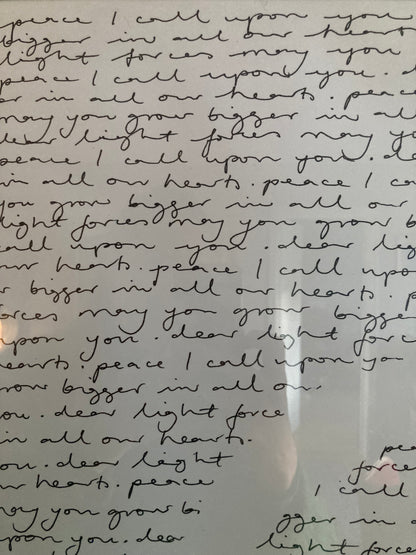 peace I call upon you
bigger in all our hearts
light forces may you
peace I call upon you. d
er in all our hearts. peace
may you grow bigger in all
dear light forces may yo
peace I call upon you. de
in all our hearts. peace I ca
you grow bigger in all our
light forces may you grow b
call upon you. dear lig
our hearts. peace I call upo
r bigger in all our hearts. p
forces may you grow bigger
upon you. dear light forc
hearts. peace I call upon yo
row bigger in all ou
ou. dear light force
in all our hearts.
ou. dear light pea
ur hearts. peace force
may you grow bi I call
gger in a
upon you. dear light forces